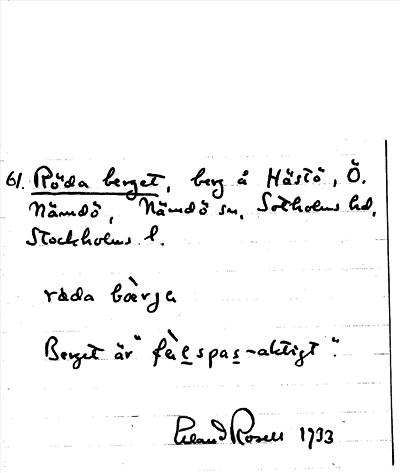 61. Röda berget, berg å Hästö, Ö.
Nämdö, Nämdö sn, Sotholms hd,
Stockholms l.
röda bæ̀rjɛ
Berget är "fɛ̀lspas-aktigt".
Rosell 1933